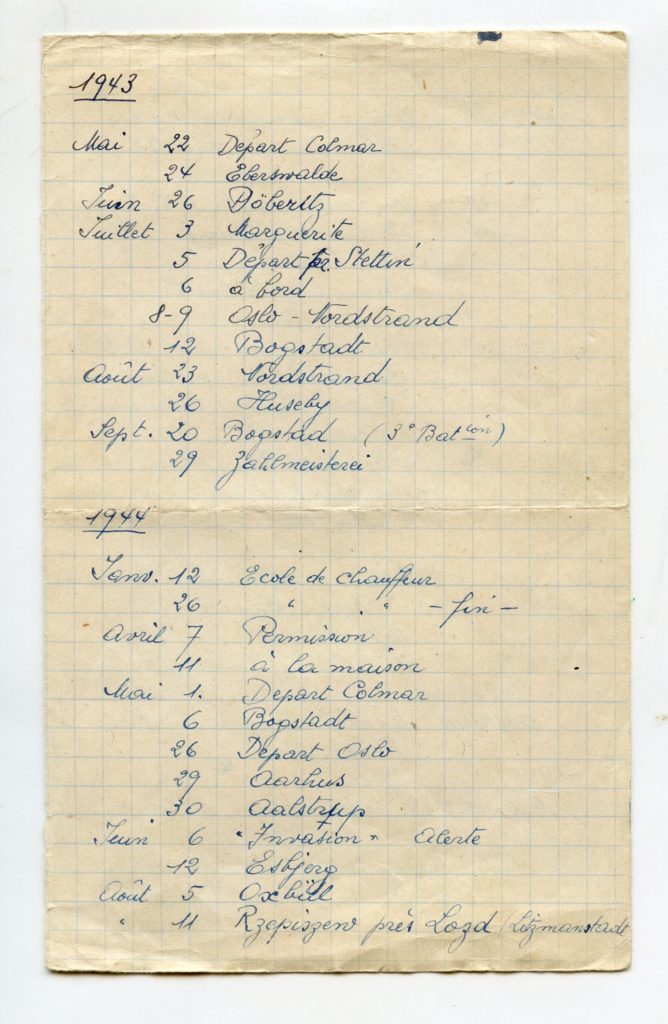 1943
Mai 22 Départ Colmar
24 Eberswalde
Juin 26 Döberitz
Juillet 3 Marguerite
5 Départ pr. Stettin
6 à bord
8-9 Oslo - Nordstrand
12 Bogstadt
Août 23 Nordstrand
26 Huseby
Sept. 20 Bogstad (3º Batlon)
29 Zahlmeisterei
1944
Janv. 12 Ecole de chauffeur
26 " " - fin -
Avril 7 Permission
11 à la maison
Mai 1. Depart Colmar
6 Bogstadt
26 Depart Oslo
29 Aarhus
30 Aalstrup
Juin 6 "Invasion" Alerte
12 Esbjerg
Août 5 Oxbüll
" 11 Rzepiszew près Lozd (Litzmanstadt